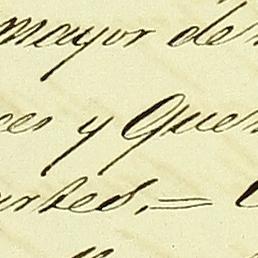 mayor de
ces y Que
urtes. =